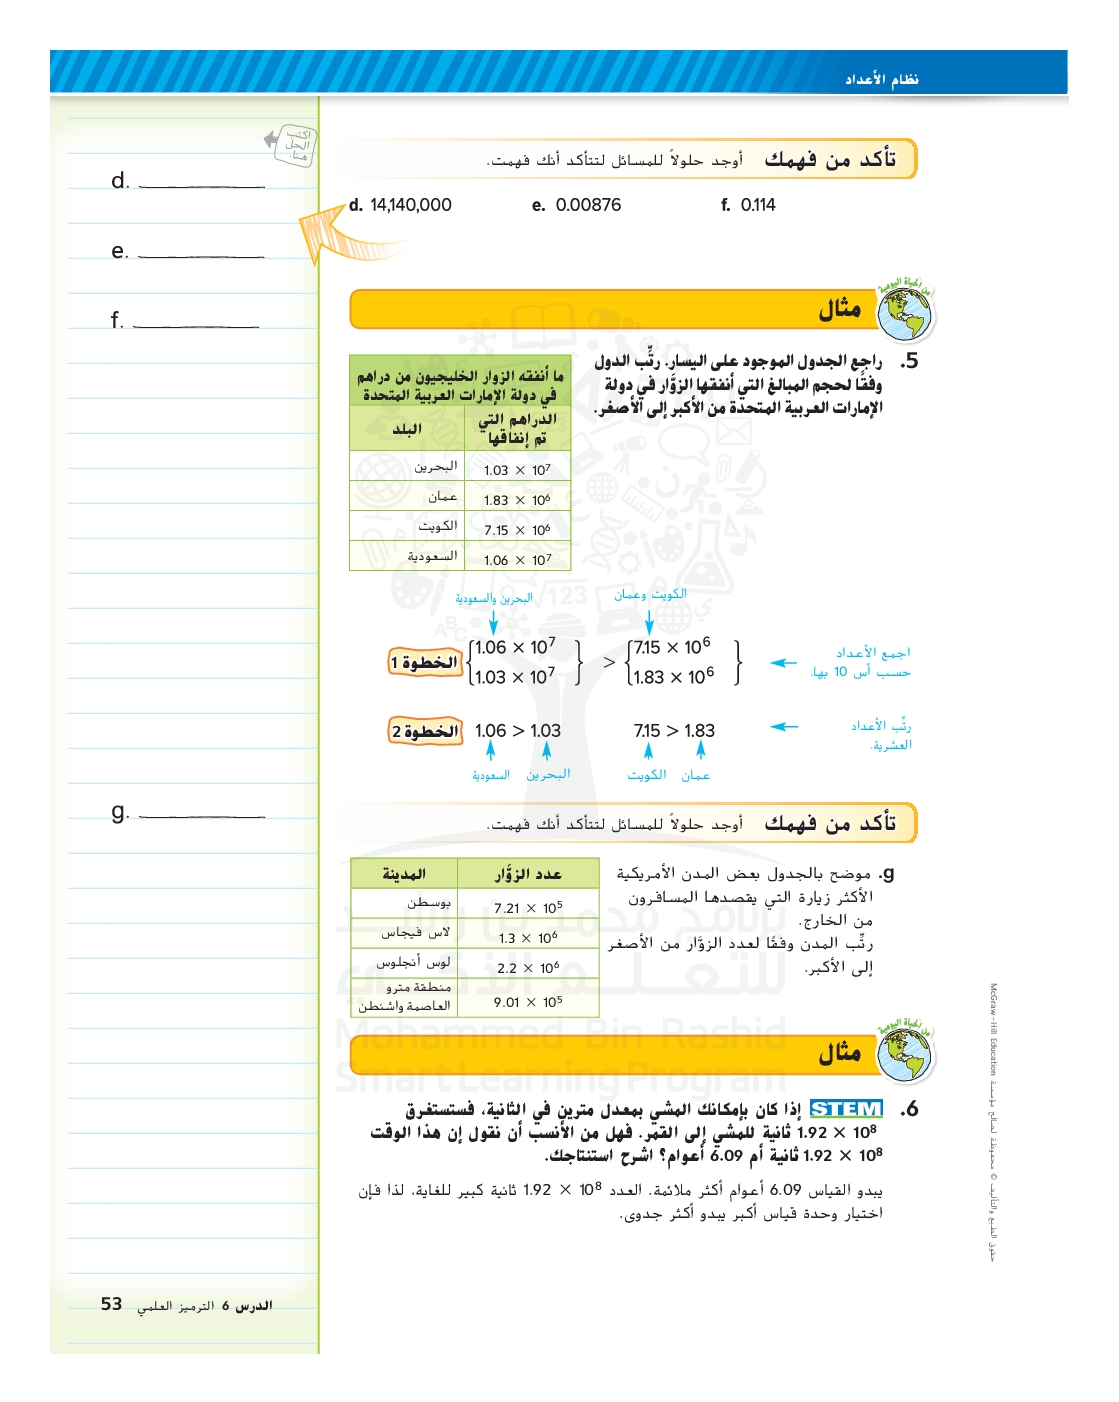 نظام الأعداد
اكتب
الحل
هنا.
تأكد من فهمك أوجد حلولاً للمسائل لتتأكد أنك فهمت.
d. 14,140,000 e. 0.00876 f. 0.114
d. ____________
e. ____________
f. ____________
من الحياة اليومية
مثال
5. راجع الجدول الموجود على اليسار. رتِّب الدول
وفقًا لحجم المبالغ التي أنفقها الزوَّار في دولة
الإمارات العربية المتحدة من الأكبر إلى الأصغر.
ما أنفقه الزوار الخليجيون من دراهم
في دولة الإمارات العربية المتحدة
البلد
الدراهم التي
تم إنفاقها
البحرين 1.03 × 10⁷
عمان 1.83 × 10⁶
الكويت 7.15 × 10⁶
السعودية 1.06 × 10⁷
البحرين والسعودية
الكويت وعمان
الخطوة 1 {1.06 × 10⁷ } > {7.15 × 10⁶ }
{1.03 × 10⁷ } {1.83 × 10⁶ }
اجمع الأعداد
حسب أس 10 بها.
الخطوة 2 1.06 > 1.03 7.15 > 1.83
رتِّب الأعداد
العشرية.
السعودية البحرين الكويت عمان
تأكد من فهمك أوجد حلولاً للمسائل لتتأكد أنك فهمت.
g. ____________
g. موضح بالجدول بعض المدن الأمريكية
الأكثر زيارة التي يقصدها المسافرون
من الخارج.
رتِّب المدن وفقًا لعدد الزوَّار من الأصغر
إلى الأكبر.
المدينة عدد الزوَّار
بوسطن 7.21 × 10⁵
لاس فيجاس 1.3 × 10⁶
لوس أنجلوس 2.2 × 10⁶
منطقة مترو
العاصمة واشنطن 9.01 × 10⁵
Mohammed Bin Rashid
Smart Learning Program
من الحياة اليومية
مثال
6. STEM إذا كان بإمكانك المشي بمعدل مترين في الثانية، فستستغرق
1.92 × 10⁸ ثانية للمشي إلى القمر. فهل من الأنسب أن نقول إن هذا الوقت
1.92 × 10⁸ ثانية أم 6.09 أعوام؟ اشرح استنتاجك.
يبدو القياس 6.09 أعوام أكثر ملائمة. العدد 1.92 × 10⁸ ثانية كبير للغاية، لذا فإن
اختيار وحدة قياس أكبر يبدو أكثر جدوى.
حقوق الطبع والتأليف © محفوظة لصالح مؤسسة McGraw-Hill Education
الدرس 6 الترميز العلمي 53